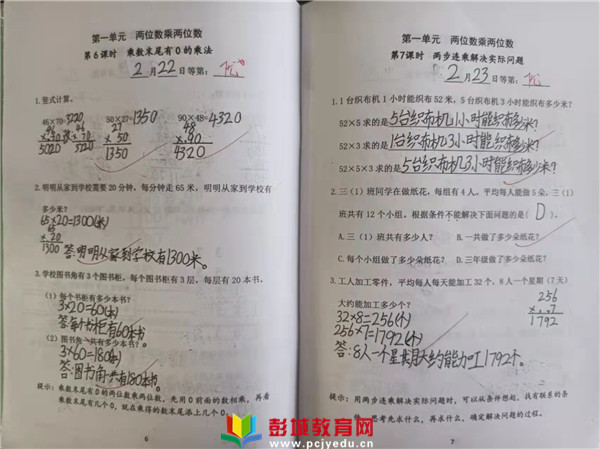 第一单元 两位数乘两位数
第6课时 乘数末尾有0的乘法
2月22日等第：优
1.竖式计算。
50×27=1350
90×48=4320
27
× 50
1350
48
× 90
4320
2.明明从家到学校需要20分钟，每分钟走65米，明明从家到学校有
多少米？
65×20=1300(米)
65
× 20
1300
答:明明从家到学校有1300米。
3.学校图书角有3个图书柜，每个图书柜有3层，每层有20本书。
（1）每个书柜有多少本书？
3×20=60(本)
答:每个书柜有60本书
（2）图书角一共有多少本书？
3×60=180(本)
答:图书角一共有180本书
提示：乘数末尾有0的两位数乘两位数，先用0前面的数相乘，再看
乘数末尾有几个0，就在乘得的数末尾添上几个0。
6
第一单元 两位数乘两位数
第7课时 两步连乘解决实际问题
2月23日等第：优
1.1台织布机1小时能织布52米，5台织布机3小时能织布多少米？
52×5求的是5台织布机1小时能织布多少米?
52×3求的是1台织布机3小时能织布多少米?
52×5×3求的是5台织布机3小时能织布多少米?
2.三（1）班同学在做纸花，每组有4人，平均每人做5朵，三（1）
班共有12个小组，根据条件不能解决下面问题的是（ D ）。
A.三（1）班共有多少人？ B.一共做了多少朵纸花？
C.每个小组做了多少朵纸花？ D.三年级做了多少朵纸花？
3.工人加工零件，平均每人每天能加工32个，8人一个星期（7天）
大约能加工多少个？
32×8=256(个)
256×7=1792(个)
256
× 7
1792
答:8人一个星期大约能加工1792个。
提示：用两步连乘解决实际问题时，可以从条件想起，找有联系的条
件，思考先求什么，再求什么，确定解决问题的过程。
7
彭城教育网
www.pcjyedu.cn